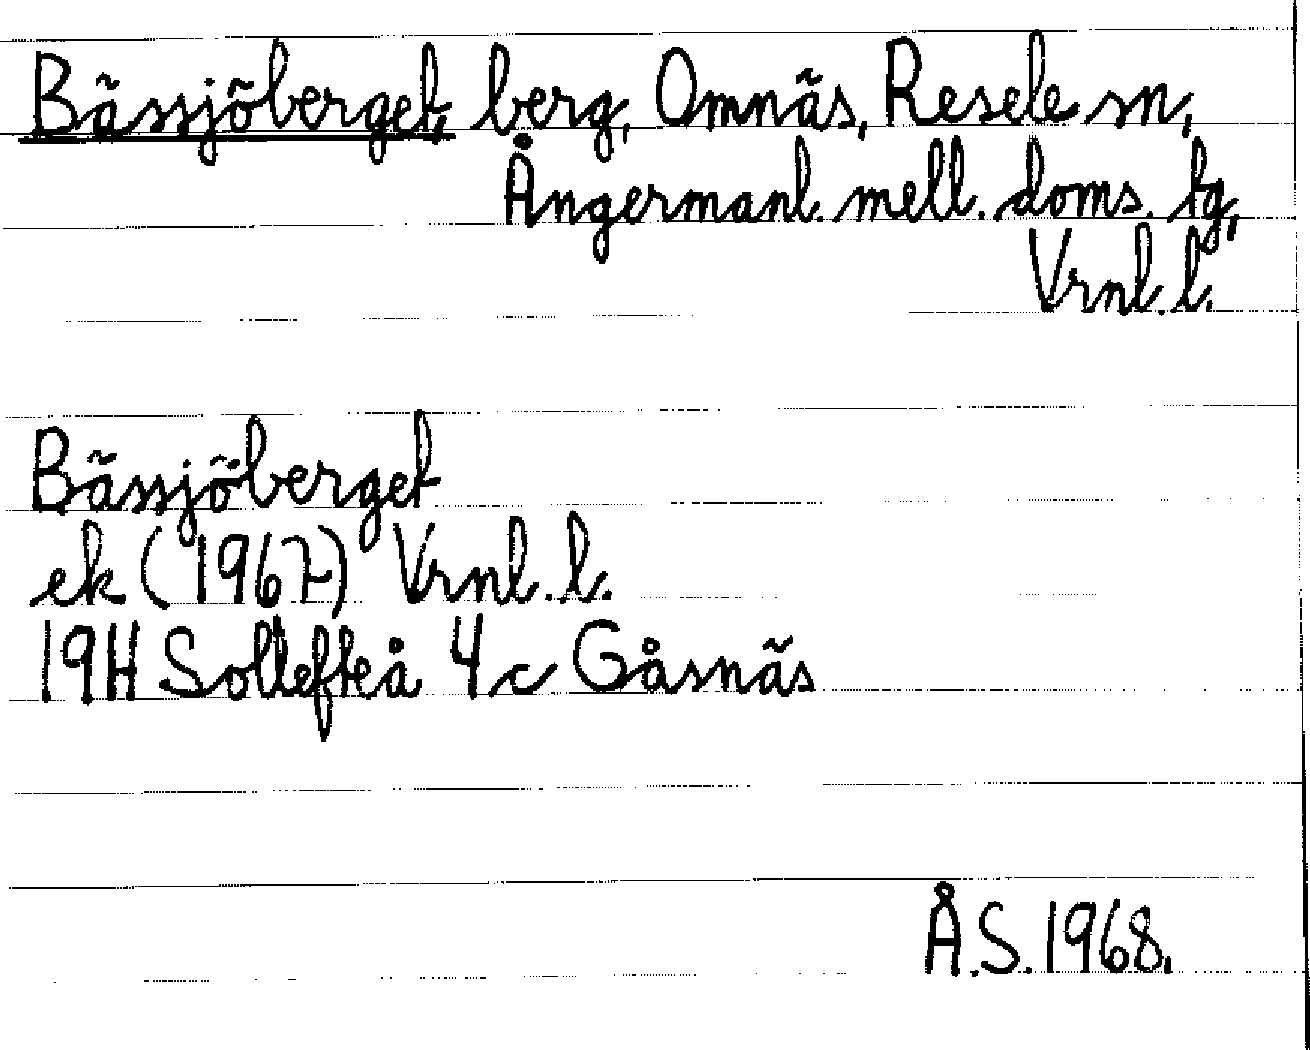 Bässjöberget, berg, Omnäs, Resele sn,
Ångermanl. mell. doms. tg,
Vrnl. l.
Bässjöberget
ek (1967) Vrnl. l.
19H Sollefteå 4c Gåsnäs
Å.S. 1968.